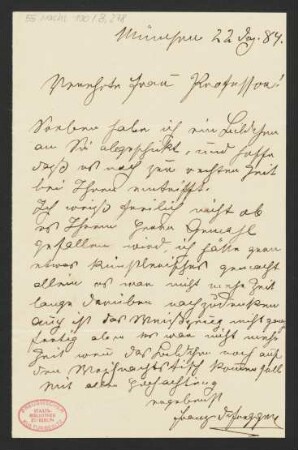 München 22 Dez. 84.
Verehrte Frau Professor!
Soeben habe ich ein Bildchen
an Sie abgeschikt, und hoffe
daß es noch zur rechten Zeit
bei Ihnen eintrifft.
Ich weiß freilich nicht ob
es Ihrem Herrn Gemahl
gefallen wird ich hätte gern
etwas künstlerisches gemacht
allein es war nicht mehr Zeit
lange darüber nachzudenken
auch ist das nicht ganz
fertig aber es war nicht mehr
Zeit wenn das Bildchen noch auf
den Weihnachtstisch kommen soll
Mit aller Hochachtung
ergebenst
Franz Defregger